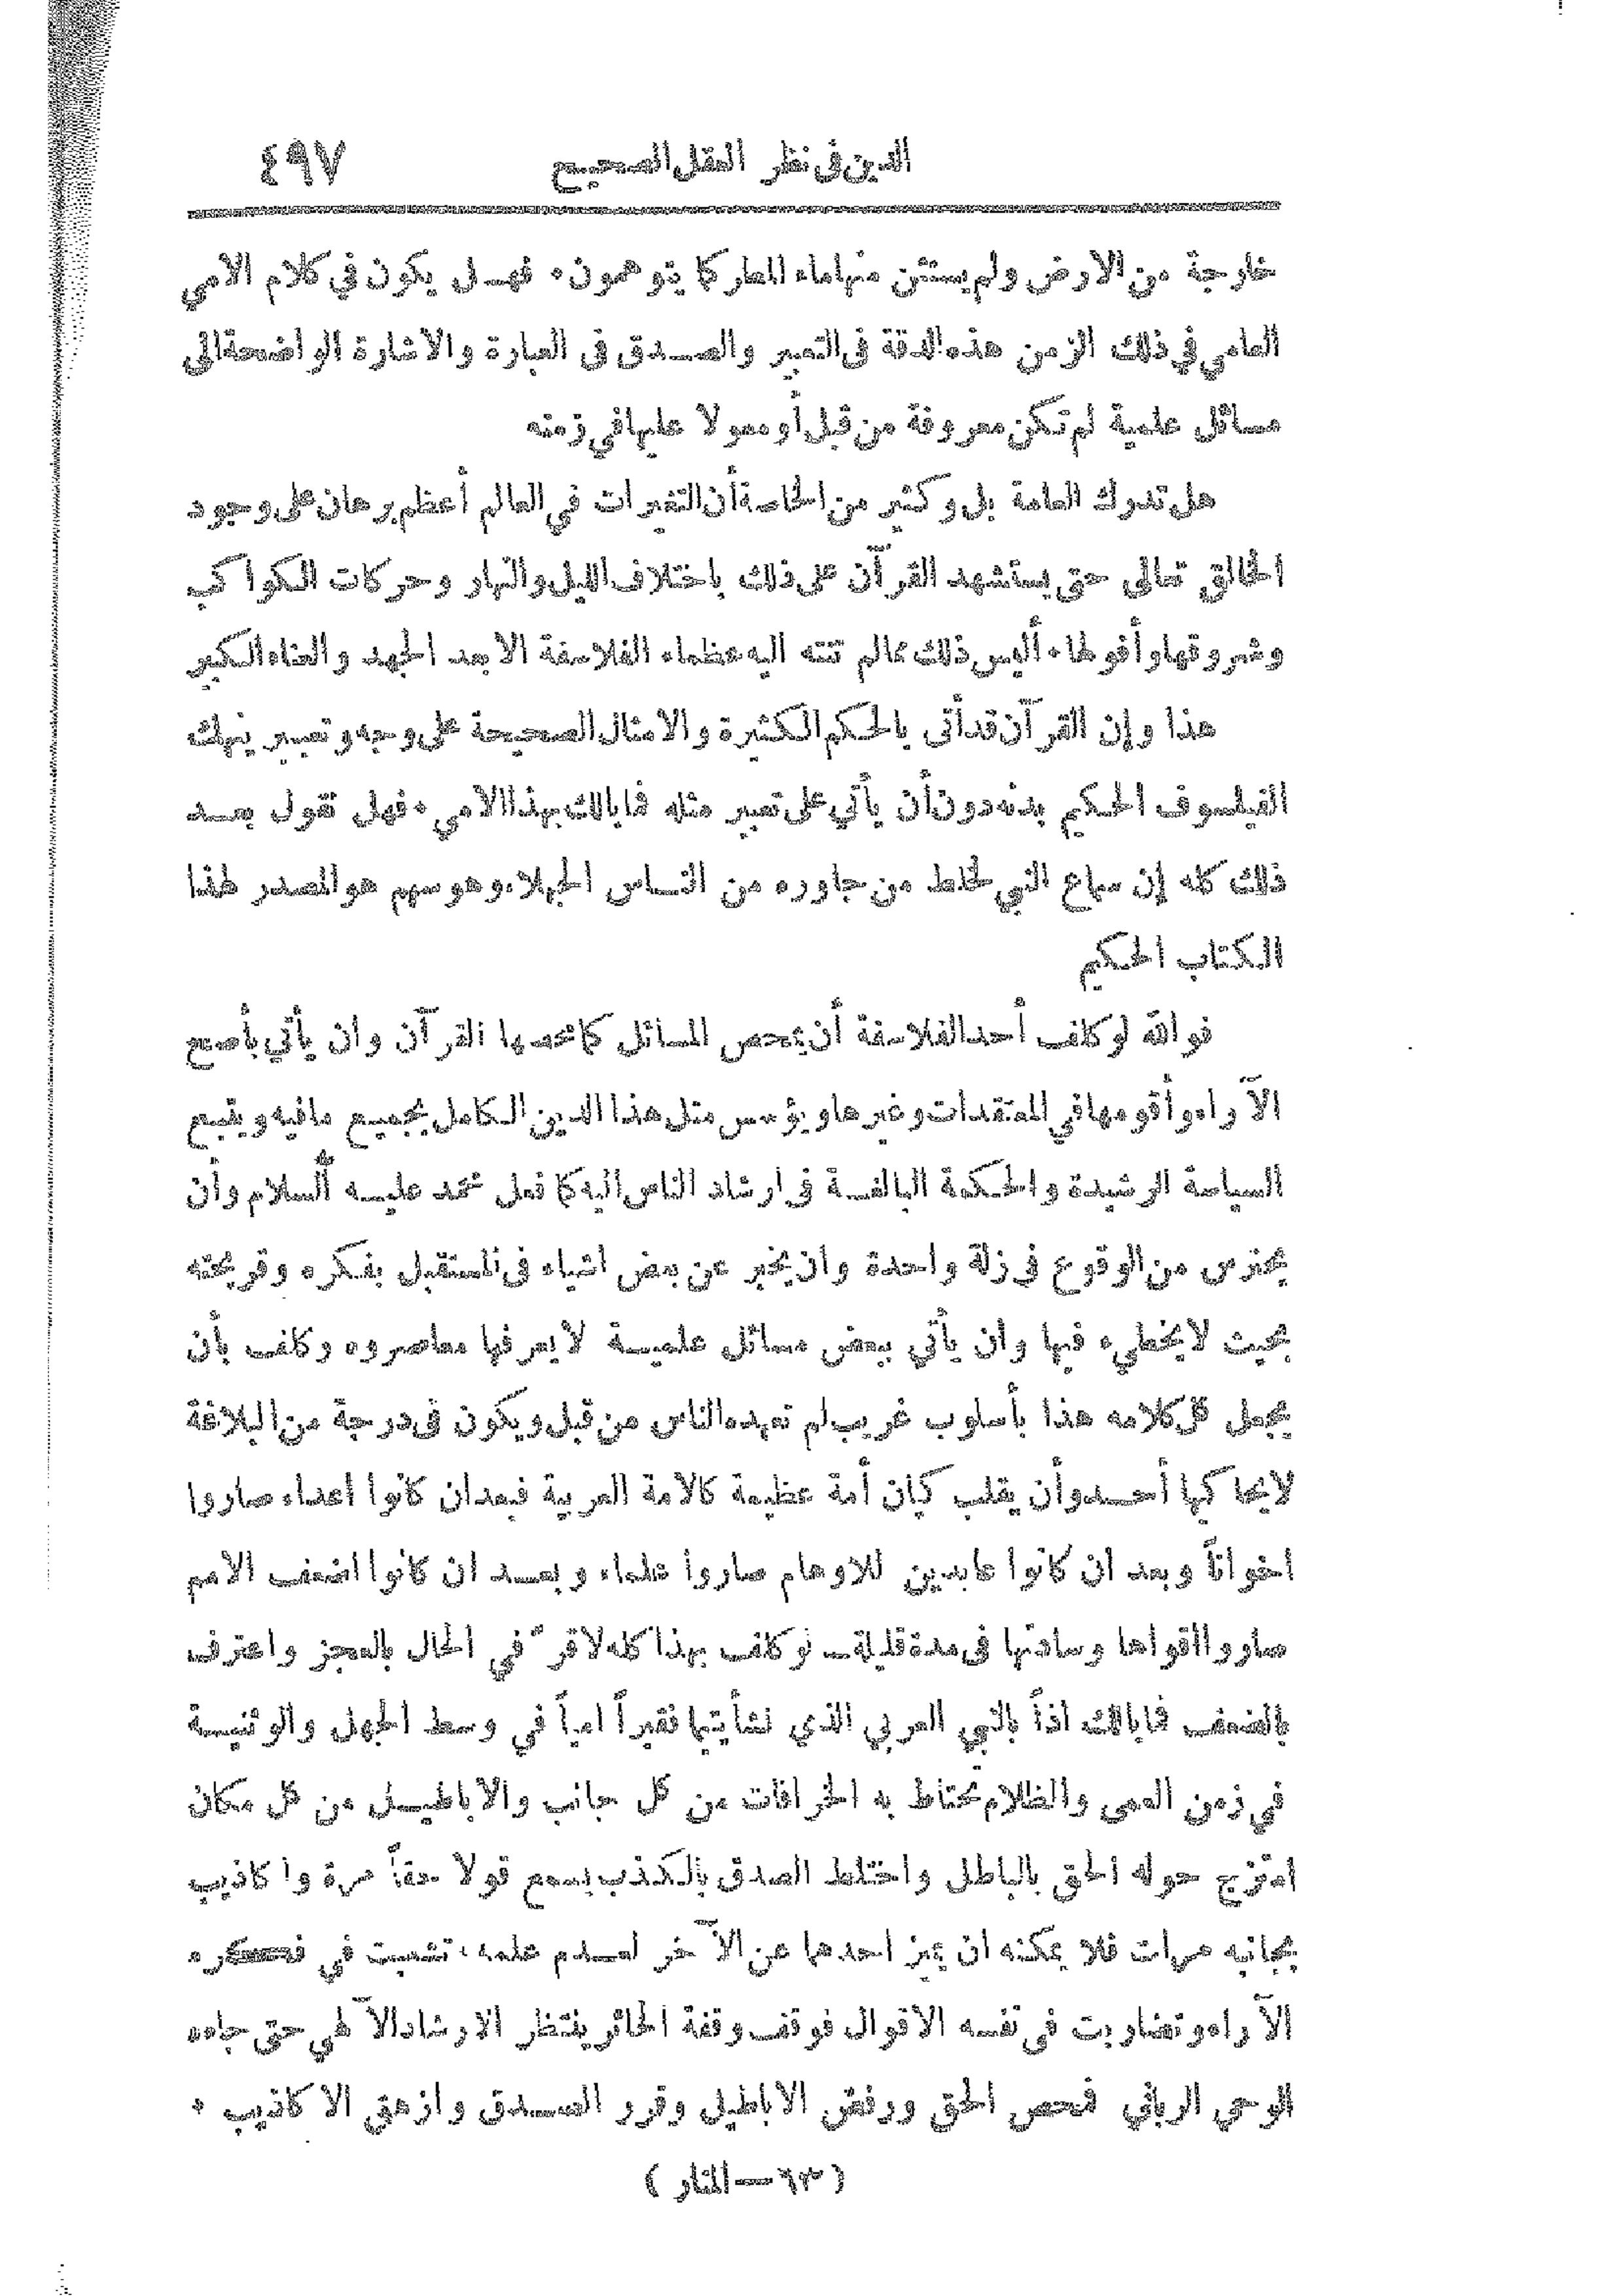 الدين في نظر العقل الصحيح ٤٩٧
خارجة من الارض ولم يستثن منها ماء المطر كما يتوهمون ٠ فهل يكون في كلام الامي
العامي في ذلك الزمن هذه الدقة في التعبير والصدق في العبارة والاشارة الواضحة الى
مسائل علمية لم تكن معروفة من قبل أو معولا عليها في زمنه
هل تدرك العامة بل وكثير من الخاصة أن التغيرات في العالم أعظم برهان على وجود
الخالق تعالى حتى يستشهد القرآن على ذلك باختلاف الليل والنهار وحركات الكواكب
وشروقها وأفولها ٠ أليس ذلك مما لم تنته اليه عظماء الفلاسفة الا بعد الجهد والعناء الكبير
هذا وإن القرآن قد أتى بالحكم الكثيرة والامثال الصحيحة على وجه وتعبير ينهك
الفيلسوف الحكيم بدنه دون أن يأتي على تعبير مثله فما بالك بهذا الامي ٠ فهل تقول بعد
ذلك كله إن سماع النبي لخلط من جاوره من الناس الجهلاء وهوسهم هو المصدر لهذا
الكتاب الحكيم
فوالله لو كلف أحد الفلاسفة أن يمحص المسائل كما محصها القرآن وان يأتي بأصح
الآراء وأقومها في المعتقدات وغيرها ويؤسس مثل هذا الدين الكامل بجميع مافيه ويتبع
السياسة الرشيدة والحكمة البالغة في ارشاد الناس اليه كما فعل محمد عليه السلام وأن
يحترس من الوقوع في زلة واحدة وان يخبر عن بعض اشياء في المستقبل بفكره وقريحته
بحيث لا يخطيء فيها وأن يأتي ببعض مسائل علمية لا يعرفها معاصروه وكلف بأن
يجعل كل كلامه هذا بأسلوب غريب لم تعهده الناس من قبل ويكون في درجة من البلاغة
لا يحاكيها أحد وأن يقلب كيان أمة عظيمة كالامة العربية فبعد ان كانوا اعداء صاروا
اخواناً وبعد ان كانوا عابدين للاوهام صاروا علماء وبعد ان كانوا اضعف الامم
صاروا اقواها وسادتها في مدة قليلة ــ لو كلف بهذا كله لاقرّ في الحال بالعجز واعترف
بالضعف فما بالك اذاً بالنبي العربي الذي نشأ يتيما فقيراً امياً في وسط الجهل والوثنية
في زمن العمى والظلام تحتاط به الخرافات من كل جانب والاباطيل من كل مكان
امتزج حوله الحق بالباطل واختلط الصدق بالكذب يسمع قولا حقاً مرة واكاذيب
بجانبه مرات فلا يمكنه ان يميز احدها عن الآخر لعدم علمه ، تشعبت في فكره
الآراء وتضاربت في نفسه الاقوال فوقف وقفة الحائر ينتظر الارشاد الآلهي حتى جاءه
الوحي الرباني فمحص الحق ورفض الاباطيل وقرر الصدق وازهق الاكاذيب ٠
(٦٣ — المنار)